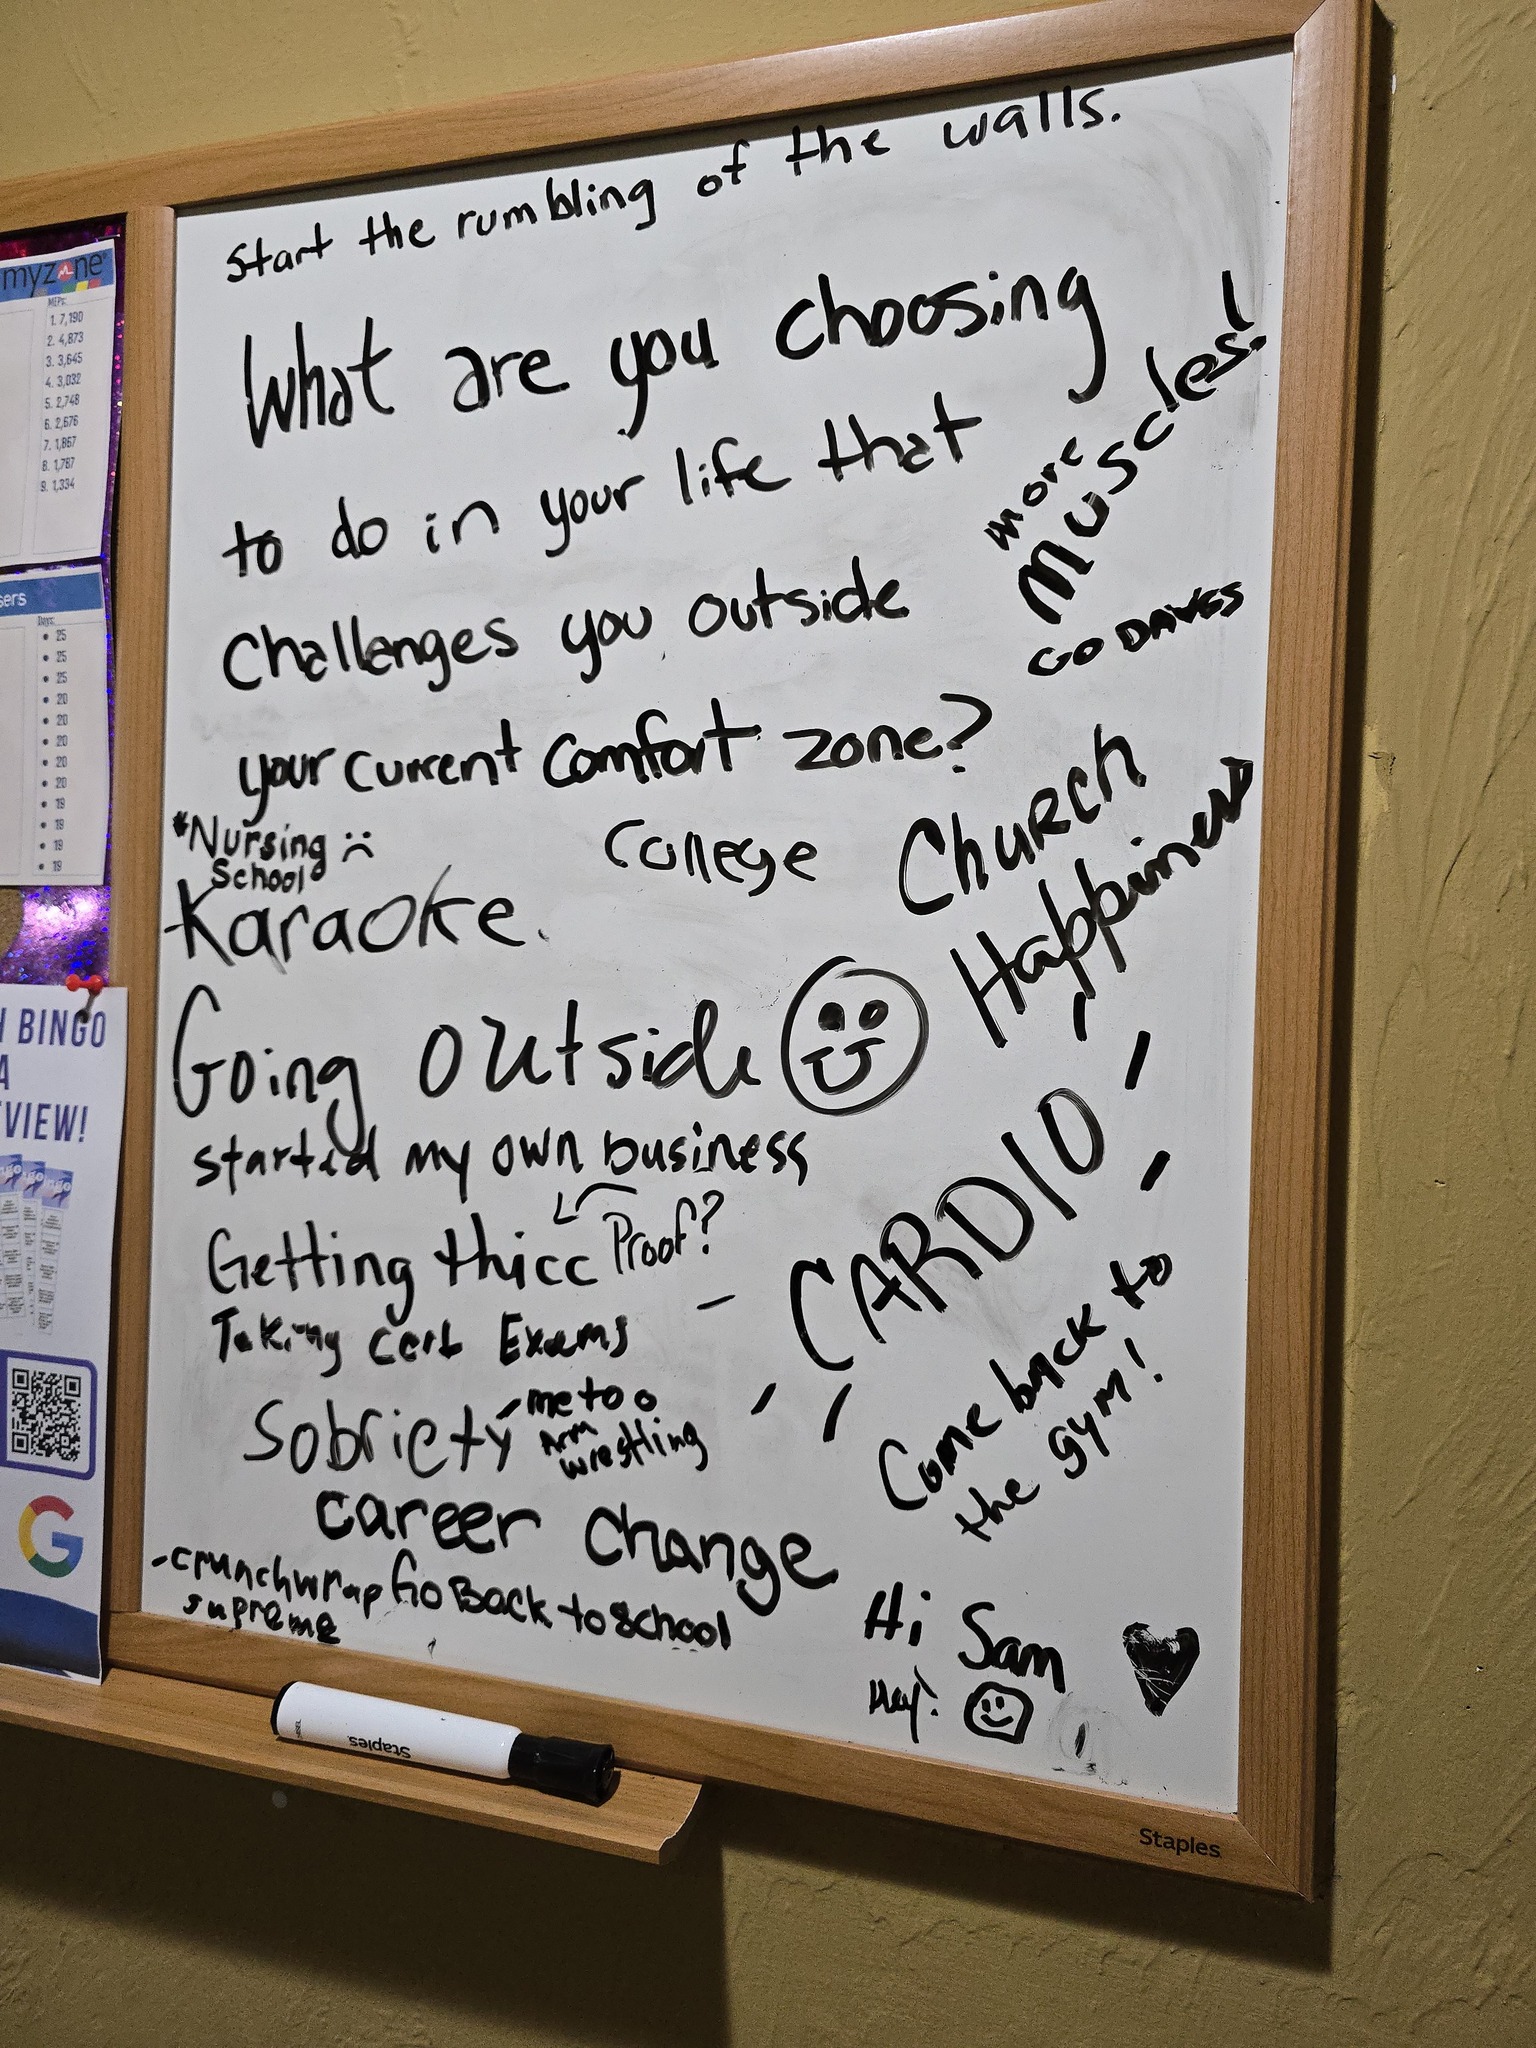 Start the rumbling of the walls.
What are you choosing
to do in your life that
challenges you outside
your current comfort zone?
more
muscles!
GO DAVES
*Nursing :(
School
College
Church
Happiness
Karaoke.
Going outside
started my own business
Getting thicc
Proof?
Taking cert Exams
CARDIO
Sobriety
- me too
Arm
wrestling
Come back to
the gym!
career change
- crunchwrap
supreme
Go Back to School
Hi Sam
Hey!
Staples
Staples
myzone
MEPs:
1. 7,190
2. 4,873
3. 3,645
4. 3,032
5. 2,748
6. 2,676
7. 1,867
8. 1,787
9. 1,334
sers
Days:
• 25
• 25
• 25
• 20
• 20
• 20
• 20
• 20
• 19
• 19
• 19
• 19
H BINGO
A
EVIEW!
G